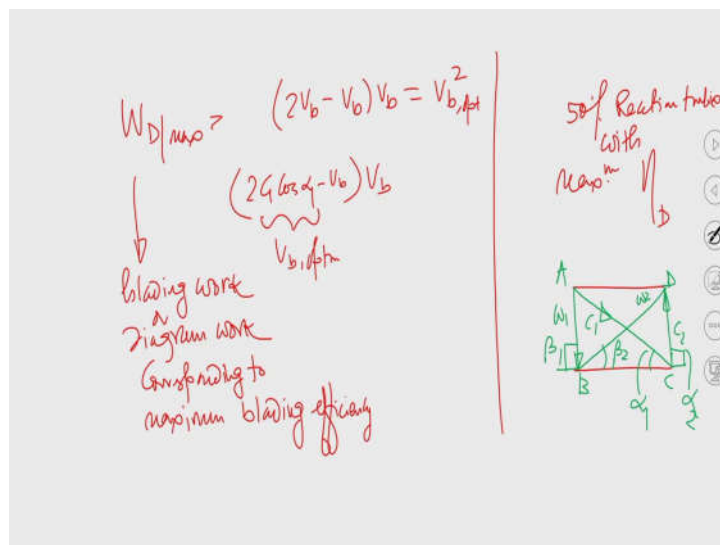 W_D|max = (2V_b - V_b) V_b = V²_b,opt
(2C₁ cos α₁ - V_b) V_b
V_b,optm
blading work
or
Diagram work
Corresponding to
maximum blading efficiency
50% Reaction turbine
with
maxᵐ η_D
A D
ω₁ C₁ ω₂ C₂
β₁ β₂
B C
α₁ α₂